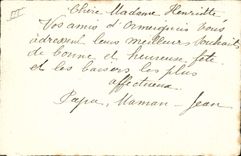 III
Chère Madame Henriette
Vos amis d'Ormeignies vous
adressent leurs meilleurs souhaits
de bonne et heureuse fête
et les baisers les plus
affectueux.
Papa, Maman - Jean